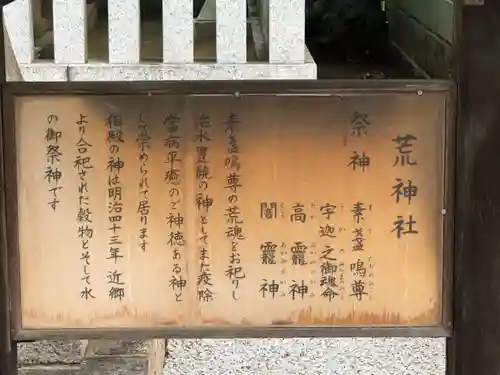 荒神社
祭神 素盞鳴尊
宇迦之御魂命
高龗神
闇龗神
素盞鳴尊の荒魂をお祀りし
治水豊饒の神としてまた疫除
当病平癒のご神徳ある神と
して崇められて居ります
相殿の神は明治四十三年 近郷
より合祀された穀物とそして水
の御祭神です